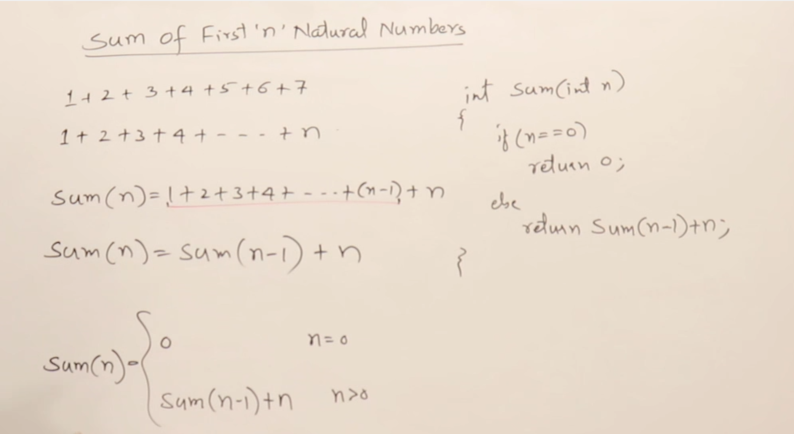 Sum of First 'n' Natural Numbers
1+2+3+4+5+6+7
1+2+3+4+---+n
Sum(n)=1+2+3+4+---+(n-1)+n
Sum(n)=Sum(n-1)+n
Sum(n)={
0 n=0
Sum(n-1)+n n>0
int Sum(int n)
{
if(n==0)
return 0;
else
return Sum(n-1)+n;
}